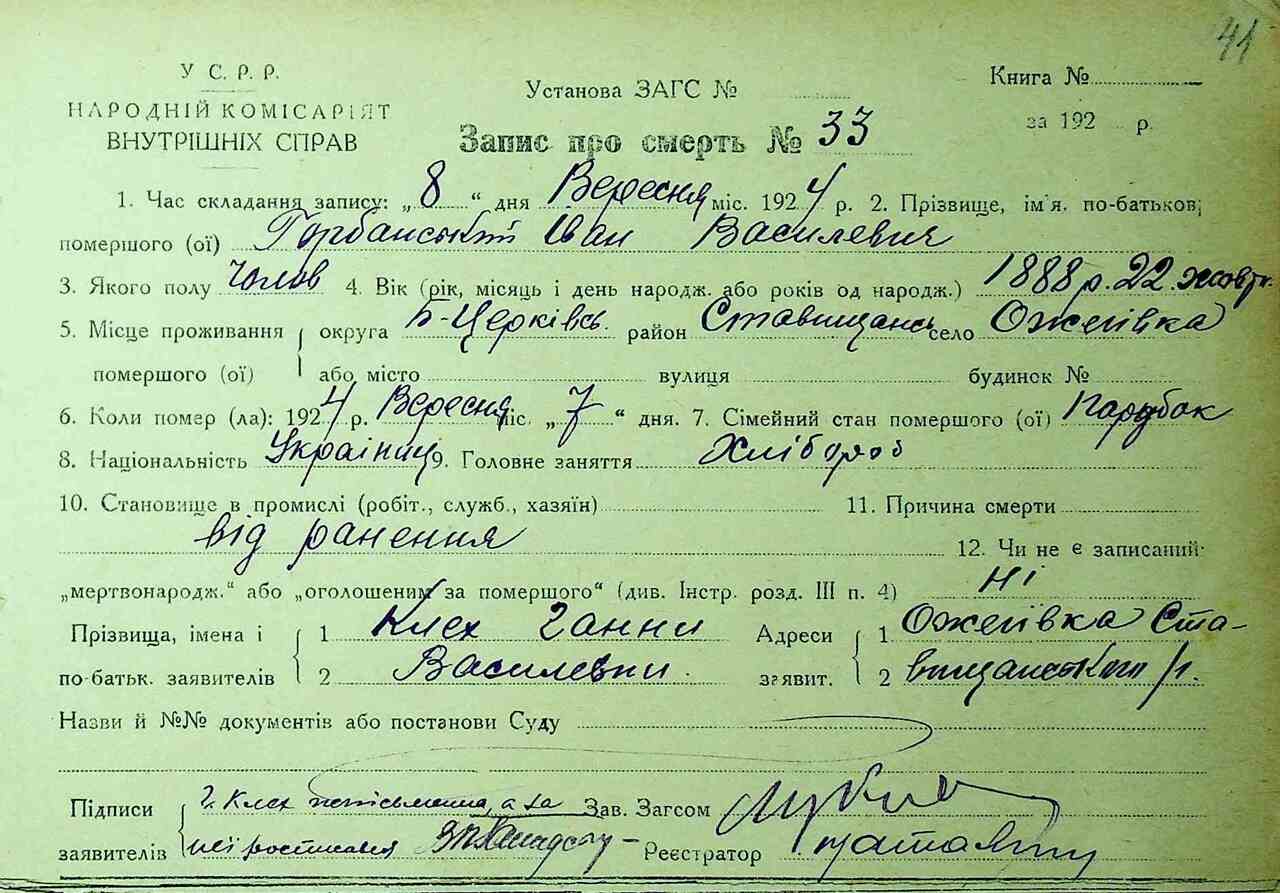 41
У С. Р. Р.
НАРОДНІЙ КОМІСАРІЯТ
ВНУТРІШНІХ СПРАВ
Установа ЗАГС №
Книга №
за 192 р.
Запис про смерть № 33
1. Час складання запису: „8“ дня Вересня міс. 1924 р. 2. Прізвище, ім'я. по-батькові
помершого (ої) Горбанський Іван Василевич
3. Якого полу Чолов 4. Вік (рік, місяць і день народж. або років од народж.) 1888 р. 22 жовтн.
5. Місце проживання округа Б-Церківсь. район Ставищансь село Ожегівка
помершого (ої) або місто вулиця будинок №
6. Коли помер (ла): 1924 р. Вересня міс. „7“ дня. 7. Сімейний стан помершого (ої) Парубок
8. Національність Україниц 9. Головне заняття Хлібороб
10. Становище в промислі (робіт., служб., хазяїн) 11. Причина смерти
від ранення 12. Чи не є записаний
„мертвонародж.“ або „оголошеним за помершого“ (див. Інстр. розд. III п. 4) Ні
Прізвища, імена і 1 Клех Ганни Адреси 1 Ожегівка Ста-
по-батьк. заявителів 2 Василевни. заявит. 2 вищанського р.
Назви й №№ документів або постанови Суду
Підписи Г. Клех неписьменна, а за Зав. Загсом
заявителів неї росписался Реєстратор